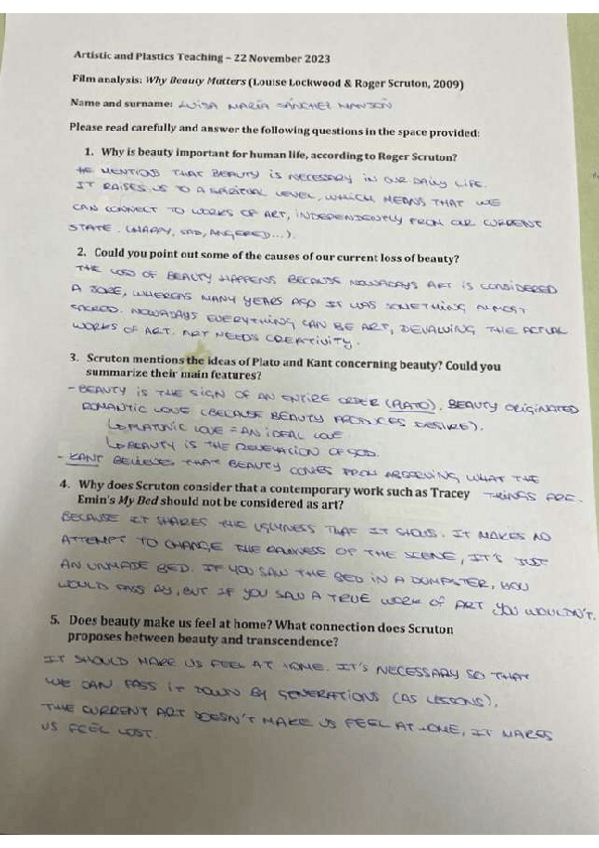 Artistic and Plastics Teaching – 22 November 2023
Film analysis: Why Beauty Matters (Louise Lockwood & Roger Scruton, 2009)
Name and surname: LUISA MARÍA SÁNCHEZ
Please read carefully and answer the following questions in the space provided:
1. Why is beauty important for human life, according to Roger Scruton?
HE MENTIONS THAT BEAUTY IS NECESSARY IN OUR DAILY LIFE.
IT RAISES US TO A SPIRITUAL LEVEL, WHICH MEANS THAT WE
CAN CONNECT TO WORKS OF ART, INDEPENDENTLY FROM OUR CURRENT
STATE. (HAPPY, SAD, ANGERED...).
2. Could you point out some of the causes of our current loss of beauty?
THE LOSS OF BEAUTY HAPPENS BECAUSE NOWADAYS ART IS CONSIDERED
A JOKE, WHEREAS MANY YEARS AGO IT WAS SOMETHING ALMOST
SACRED. NOWADAYS EVERYTHING CAN BE ART, DEVALUING THE ACTUAL
WORKS OF ART. ART NEEDS CREATIVITY.
3. Scruton mentions the ideas of Plato and Kant concerning beauty? Could you
summarize their main features?
- BEAUTY IS THE SIGN OF AN ENTIRE ORDER (PLATO). BEAUTY ORIGINATED
ROMANTIC LOVE (BECAUSE BEAUTY PRODUCES DESIRE).
↳ PLATONIC LOVE = AN IDEAL LOVE.
↳ BEAUTY IS THE REVELATION OF GOD.
- KANT BELIEVES THAT BEAUTY COMES FROM OBSERVING WHAT THE
THINGS ARE.
4. Why does Scruton consider that a contemporary work such as Tracey
Emin's My Bed should not be considered as art?
BECAUSE IT SHARES THE UGLYNESS THAT IT SHOWS. IT MAKES NO
ATTEMPT TO CHANGE THE DARKNESS OF THE SCENE, IT'S JUST
AN UNMADE BED. IF YOU SAW THE BED IN A DUMPSTER, YOU
WOULD PASS BY, BUT IF YOU SAW A TRUE WORK OF ART YOU WOULDN'T.
5. Does beauty make us feel at home? What connection does Scruton
proposes between beauty and transcendence?
IT SHOULD MAKE US FEEL AT HOME. IT'S NECESSARY SO THAT
WE CAN PASS IT DOWN BY GENERATIONS (AS LESSONS).
THE CURRENT ART DOESN'T MAKE US FEEL AT HOME, IT MAKES
US FEEL LOST.